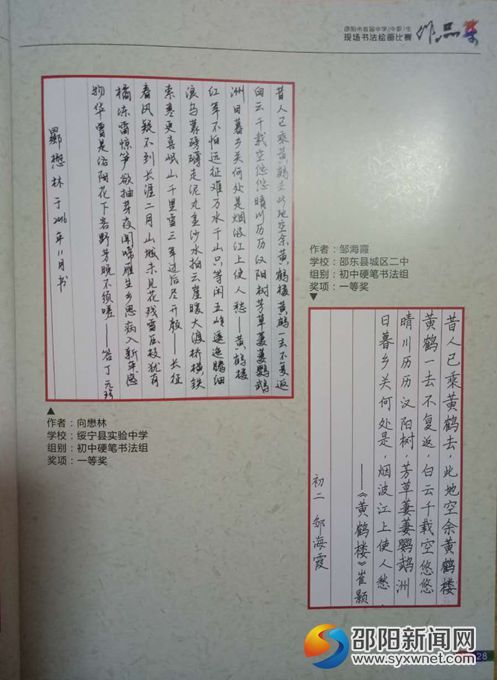 邵阳市首届中学(中职)生
现场书法绘画比赛
作品集
昔人已乘黄鹤去此地空余黄鹤楼黄鹤一去不复返
白云千载空悠悠晴川历历汉阳树芳草萋萋鹦鹉
洲日暮乡关何处是烟波江上使人愁——黄鹤楼
红军不怕远征难万水千山只等闲五岭逶迤腾细
浪乌蒙磅礴走泥丸金沙水拍云崖暖大渡桥横铁
索寒更喜岷山千里雪三军过后尽开颜 长征
春风疑不到天涯二月山城未见花残雪压枝犹有
橘冻雷惊笋欲抽芽夜闻啼雁生乡思病入新年感
物华曾是洛阳花下客野芳虽晚不须嗟——答丁元珍
懋林于2016年11月书
作者：向懋林
学校：绥宁县实验中学
组别：初中硬笔书法组
奖项：一等奖
作者：邹海霞
学校：邵东县城区二中
组别：初中硬笔书法组
奖项：一等奖
昔人已乘黄鹤去，此地空余黄鹤楼。
黄鹤一去不复返，白云千载空悠悠。
晴川历历汉阳树，芳草萋萋鹦鹉洲。
日暮乡关何处是，烟波江上使人愁。
——《黄鹤楼》崔颢
初二 邹海霞
邵阳新闻网
www.syxwnet.com
28